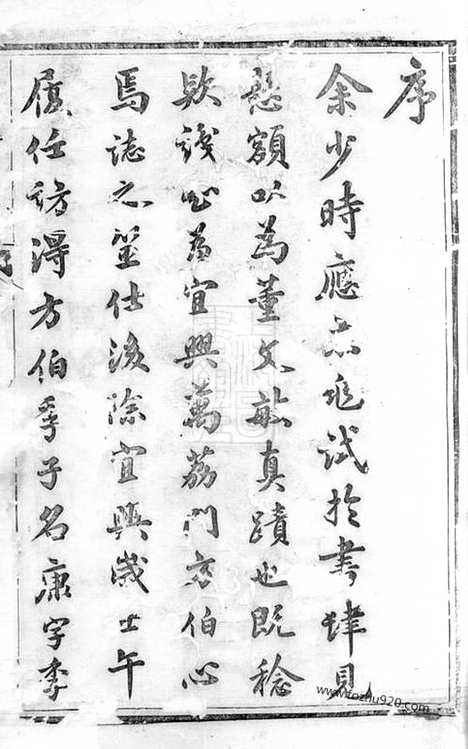 序
余少時應京兆試於書肆見
懸額以為董文敏真蹟也既稔
款識為宜興萬荔門方伯心
焉誌之筮仕後除宜興歲壬午
履任訪得方伯季子名康字季
www.fozhu920.com